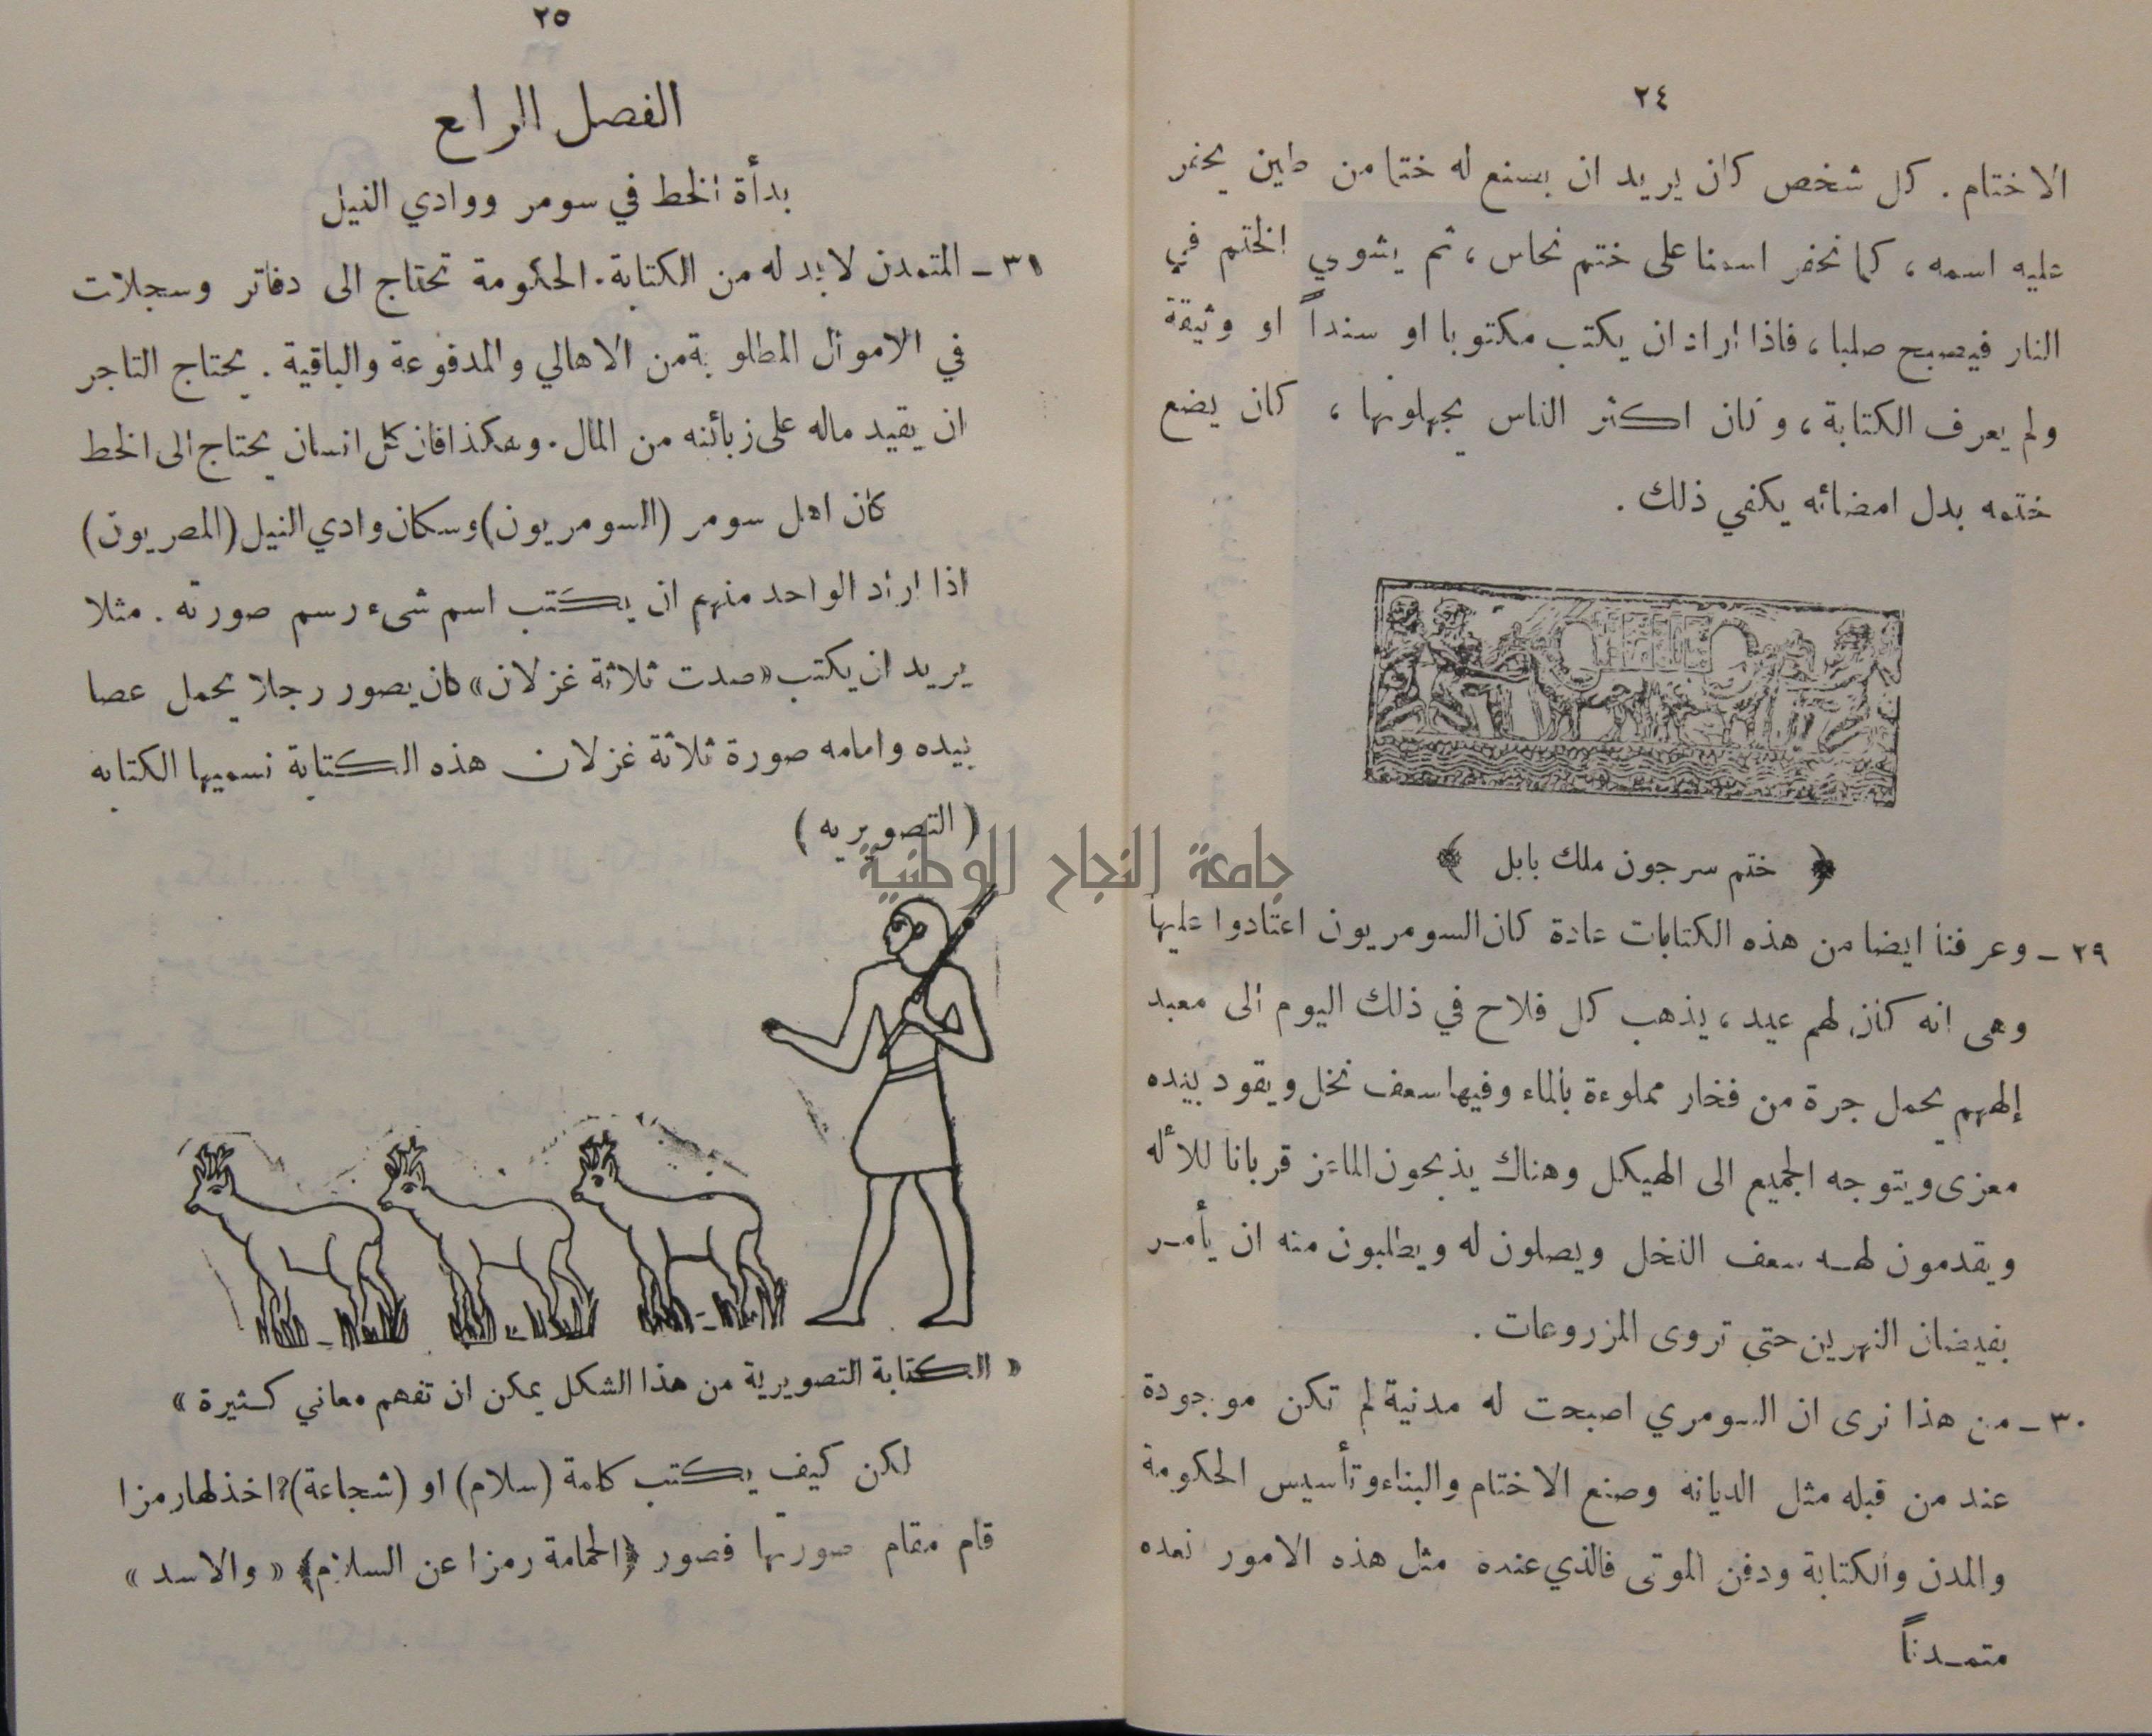 ٢٤
الاختام . كل شخص كان يريد ان يصنع له ختما من طين يحفر
عليه اسمه ، كما نحفر اسمنا على ختم نحاس ، ثم يشوي الختم في
النار فيصبح صلبا ، فاذا اراد ان يكتب مكتوبا او سنداً او وثيقة
ولم يعرف الكتابة ، وكان اكثر الناس يجهلونها ، كان يضع
ختمه بدل امضائه يكفي ذلك .
﴿ ختم سرجون ملك بابل ﴾
٢٩ ـ وعرفنا ايضا من هذه الكتابات عادة كان السومريون اعتادوا عليها
وهى انه كان لهم عيد ، يذهب كل فلاح في ذلك اليوم الى معبد
إلههم يحمل جرة من فخار مملوءة بالماء وفيها سعف نخل ويقود بيده
معزى ويتوجه الجميع الى الهيكل وهناك يذبحون الماعز قربانا للأله
ويقدمون له سعف النخل ويصلون له ويطلبون منه ان يأمر
بفيضان النهرين حتى تروى المزروعات .
٣٠ ـ من هذا نرى ان السومري اصبحت له مدنية لم تكن موجودة
عند من قبله مثل الديانه وصنع الاختام والبناء وتأسيس الحكومة
والمدن والكتابة ودفن الموتى فالذي عنده مثل هذه الامور نعده
متمدناً
٢٥
الفصل الرابع
بدأة الخط في سومر ووادي النيل
٣١ ـ المتمدن لا بد له من الكتابة . الحكومة تحتاج الى دفاتر وسجلات
في الاموال المطلوبة من الاهالي والمدفوعة والباقية . يحتاج التاجر
ان يقيد ماله على زبائنه من المال . وهكذا فان كل انسان يحتاج الى الخط
كان اهل سومر (السومريون) وسكان وادي النيل (المصريون)
اذا اراد الواحد منهم ان يكتب اسم شىء رسم صورته . مثلا
يريد ان يكتب «صدت ثلاثة غزلان» كان يصور رجلا يحمل عصا
بيده وامامه صورة ثلاثة غزلان هذه الكتابة نسميها الكتابه
( التصويريه )
جامعة النجاح الوطنية
« الكتابة التصويرية من هذا الشكل يمكن ان تفهم معاني كثيرة »
لكن كيف يكتب كلمة (سلام) او (شجاعة)؟ اخذ لها رمزا
قام مقام صورتها فصور ﴿الحمامة رمزا عن السلام﴾ « والاسد »